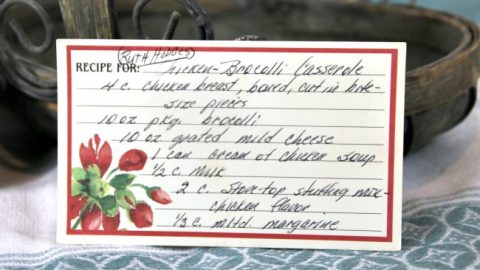 (RUTH HODGES)
RECIPE FOR: Chicken-Brocolli Casserole
4 c. chicken breast, boned, cut in bite-
size pieces
10 oz pkg. brocolli
10 oz grated mild cheese
1 can cream of chicken soup
1/2 c. milk
2 c. stove top stuffing mix-
chicken flavor
1/3 c. mltd. margarine